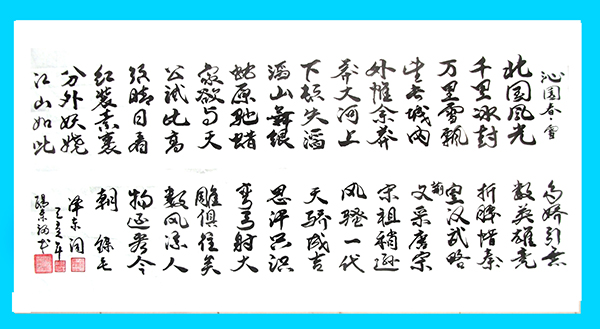 沁园春雪
北国风光
千里冰封
万里雪飘
望长城内
外惟余莽
莽大河上
下顿失滔
滔山舞银
蛇原驰蜡
象欲与天
公试比高
须晴日看
红装素裹
分外妖娆
江山如此
多娇引无
数英雄竞
折腰惜秦
皇汉武略
输文采唐宗
宋祖稍逊
风骚一代
天骄成吉
思汗只识
弯弓射大
雕俱往矣
数风流人
物还看今
朝 录毛
泽东词